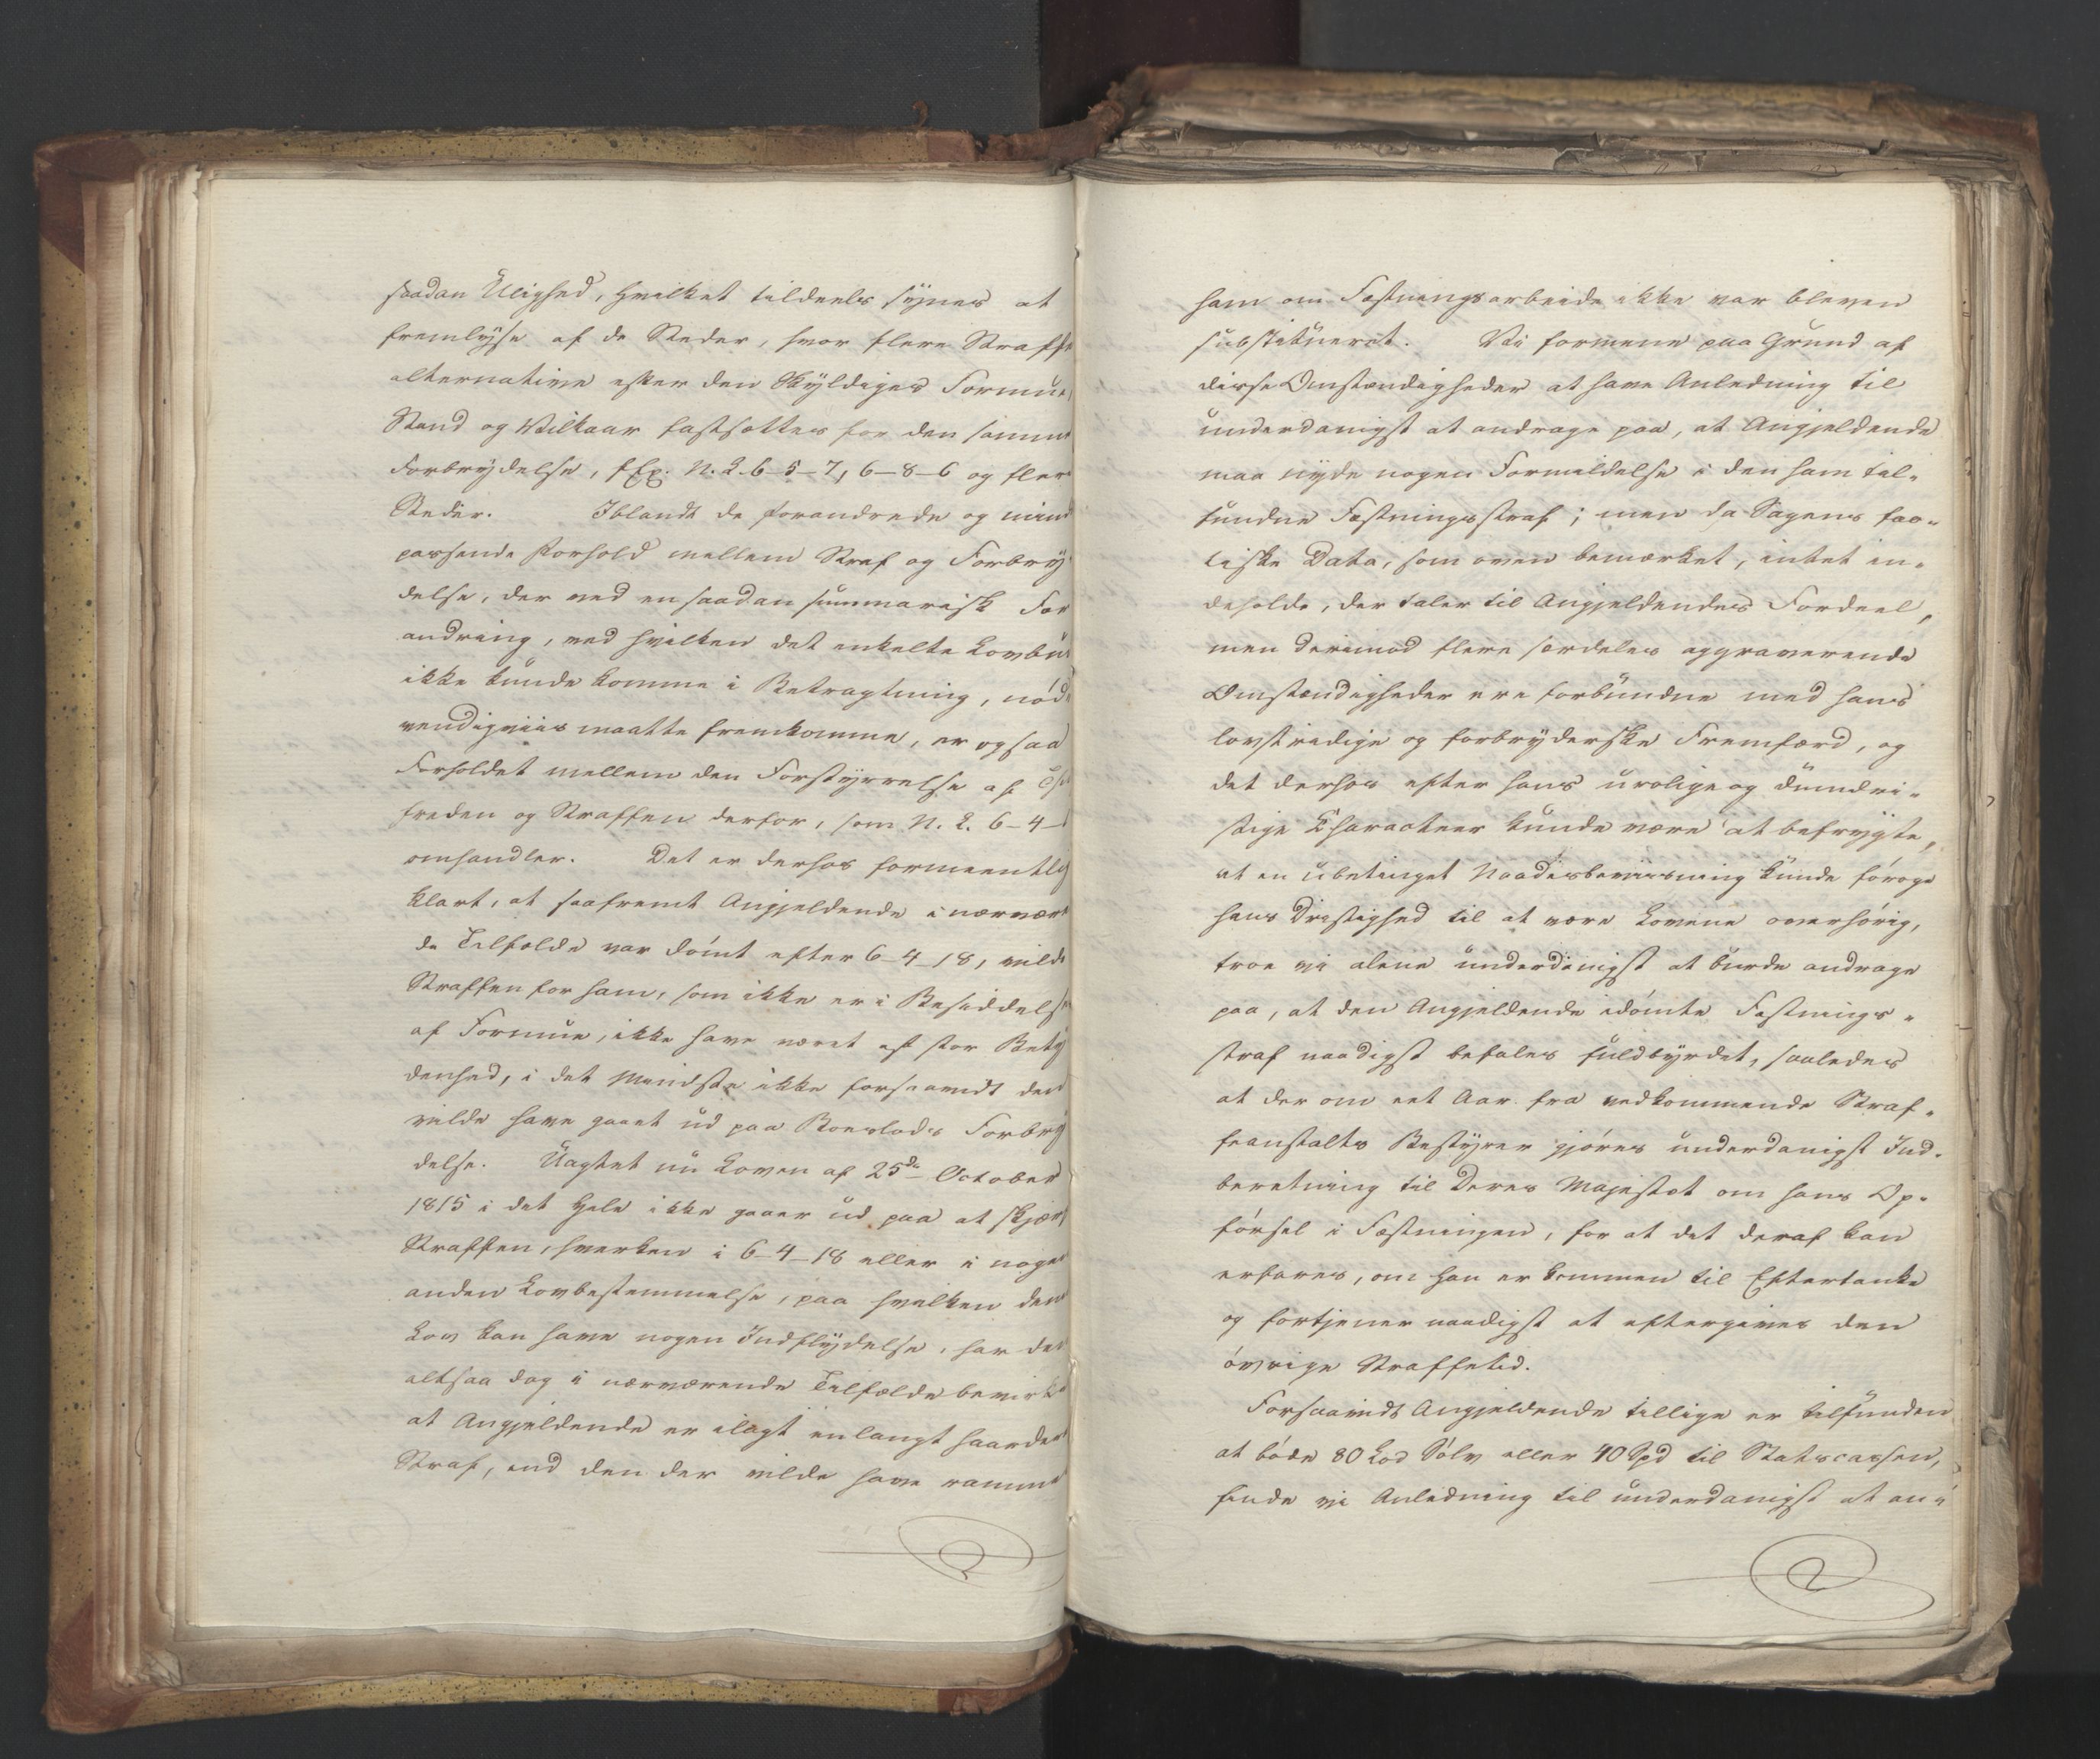 saadan Ulighed, hvilket tildeels synes at
fremlyse af de Steder, hvor flere Straffe
alternative efter den Skyldiges Formue,
Stand og Vilkaar fastsættes for den samme
Forbrydelse, f Ex. N. L. 6-5-7, 6-8-6 og flere
Steder. Iblandt de forandrede og mind
passende Forhold mellem Straf og Forbry
delse, der ved en saadan summarisk For
andring, ved hvilken det enkelte Lovbud
ikke kunde komme i Betragtning, nød
vendigviis maatte fremkomme, er ogsaa
Forholdet mellem den Forstyrrelse af
freden og Straffen derfor, som N. L. 6-4-
omhandler. Det er derhos formeentlig
klart, at saafremt Angjeldende i nærværen
de Tilfælde var dømt efter 6-4-18, vilde
Straffen for ham, som ikke er i Besiddelse
af Formue, ikke have været af stor Bety
denhed, i det Mindste ikke forsaavidt den
vilde have gaaet ud paa Boeslods Forbry
delse. Uagtet nu Loven af 25de October
1815 i det Hele ikke gaaer ud paa at skjær
Straffen, hverken i 6-4-18 eller i nogen
anden Lovbestemmelse, paa hvilken den
Lov kan have nogen Indflydelse, har det
altsaa dog i nærværende Tilfælde bevirket
at Angjeldende er ilagt en langt haardere
Straf, end den der vilde have rammet
ham om Fæstningsarbeide ikke var bleven
substitueret. Vi formene paa Grund af
disse Omstændigheder at have Anledning til
underdanigst at andrage paa, at Angjeldende
maa nyde nogen Formildelse i den ham til-
fundne Fæstningsstraf; men da Sagens fac-
tiske Data, som oven bemærket, intet in-
deholde, der taler til Angjeldendes Fordeel,
men derimod flere særdeles aggraverende
Omstændigheder ere forbundne med hans
lovstridige og forbryderske Fremfærd, og
det derhos efter hans urolige og dumdri-
stige Characteer kunde være at befrygte,
at en ubetinget Naadesbeviisning kunde forøge
hans Dristighed til at være Lovene overhørig,
troe vi alene underdanigst at burde andrage
paa, at den Angjeldende idømte Fæstnings-
straf naadigst befales fuldbyrdet, saaledes
at der om eet Aar fra vedkommende Straf-
feanstalts Bestyrer gjøres underdanigst Ind-
beretning til Deres Majestæt om hans Op-
førsel i Fæstningen, for at det deraf kan
erfares, om han er kommen til Eftertanke
og fortjener naadigst at eftergives den
øvrige Straffetid.
Forsaavidt Angjeldende tillige er tilfunden
at bøde 80 Lod Sølv eller 40 Spd til Statscassen,
finde vi Anledning til underdanigst at an-